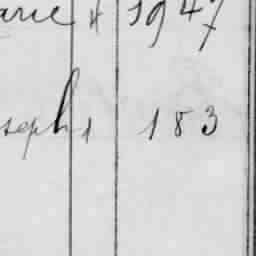 arie x 1947
seph 1 183